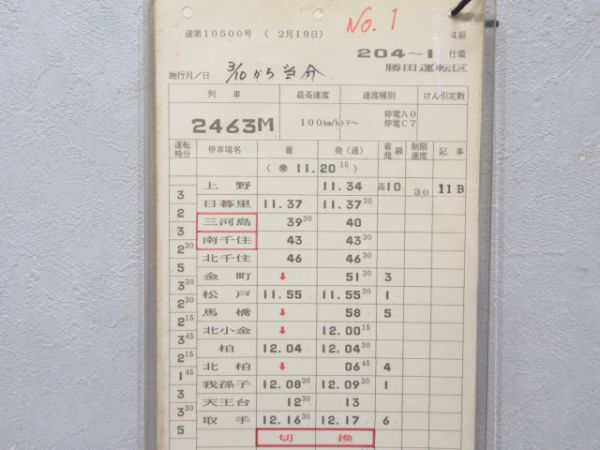 No.1
運第10500号 ( 2月19日)
4組
204~1 仕業
施行月/日 3/10から当分
勝田運転区
列車 最高速度 速度種別 けん引定数
2463M 100km/h トテ~ 停電A0
停電C7
運転時分 停車場名 着 発(通) 着発線 制限速度 記事
( 11.20 15 )
上野 11.34 高10 30 11B
3
日暮里 11.37 11.37 30
2
三河島 39 30 40
3
南千住 43 43 30
2 30
北千住 46 46 30
5
金町 ↓ 51 30 3
3 30
松戸 11.55 11.55 30 1
2 30
馬橋 ↓ 58 5
2 15
北小金 ↓ 12.00 15
3 45
柏 12.04 12.04 30
2 15
北柏 ↓ 06 45 4
1 45
我孫子 12.08 30 12.09 30 1
3
天王台 12 30 13
3 30
取手 12.16 30 12.17 6
5
切換